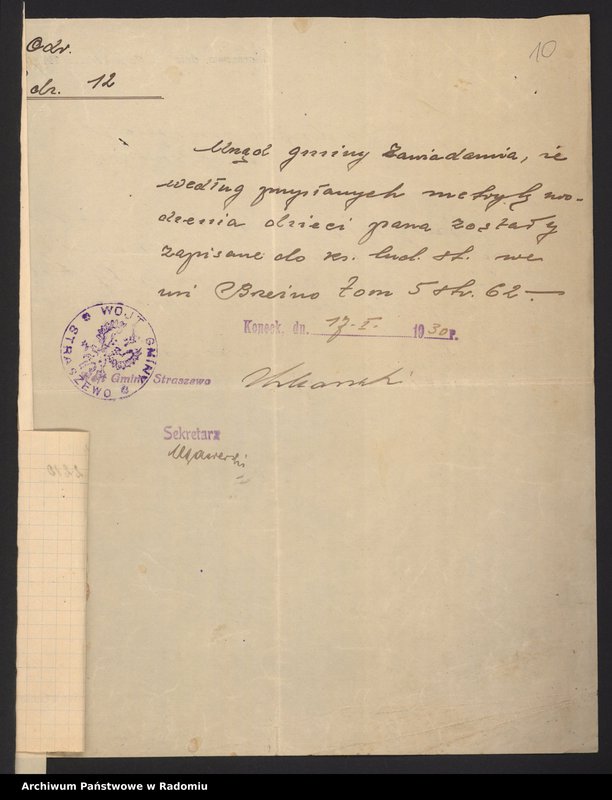 Odr.
10
dz. 12
Urząd gminy zawiadamia, że
według przysłanych metryk uro-
dzenia dzieci pana zostały
zapisane do ks. lud. st. we
wsi Brzeźno tom 5 str. 62 —
Koneck, dn. 17-I. 1930 r.
WÓJT GMINY STRASZEWO
Wójt Gminy Straszewo
Sekretarz
Archiwum Państwowe w Radomiu